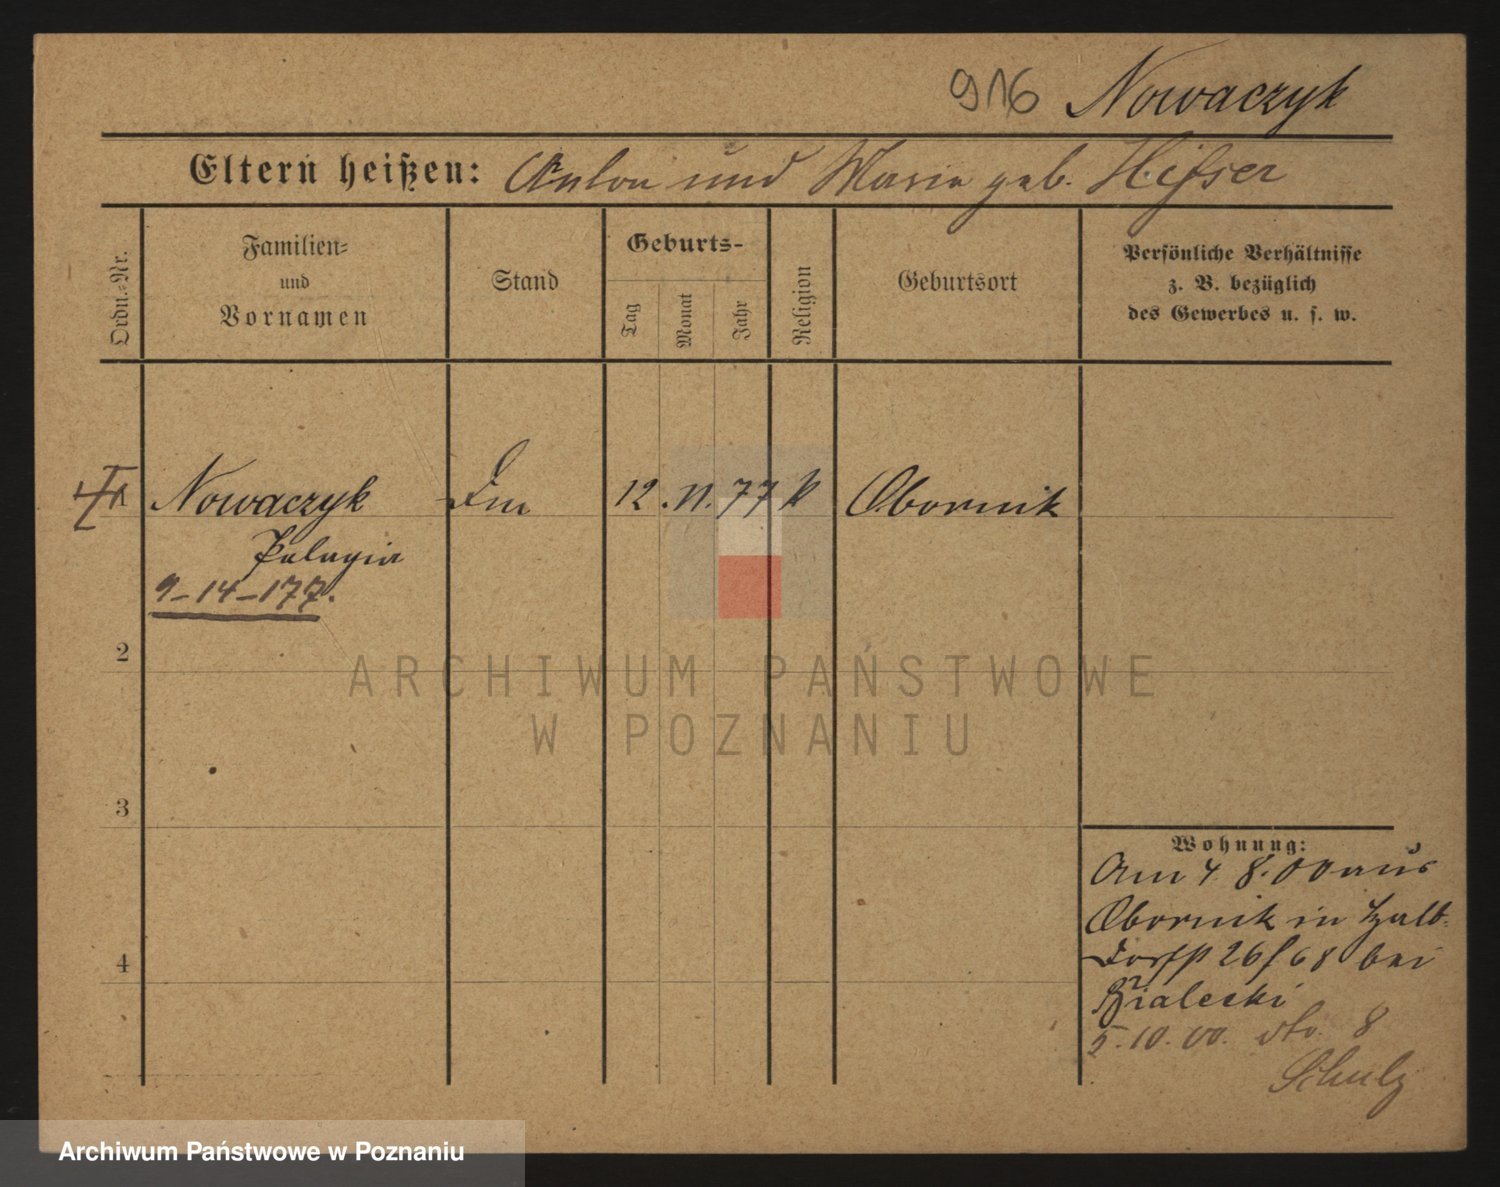 916 Nowaczyk
Eltern heißen: Anton und Maria geb.
Ordn.-Nr.
Familien-
und
Vornamen
Stand
Geburts-
Tag
Monat
Jahr
Religion
Geburtsort
Persönliche Verhältnisse
z. B. bezüglich
des Gewerbes u. s. w.
Nowaczyk 12. 11. 77 k Obornik
Pelagia
9-14-177.
2
ARCHIWUM PAŃSTWOWE
W POZNANIU
3
Wohnung:
Am 4. 8. 00 aus
Obornik in Halb-
dorfst 26/68 bei
Bialecki
5. 10. 00. dto. 8
Schulz
4
Archiwum Państwowe w Poznaniu